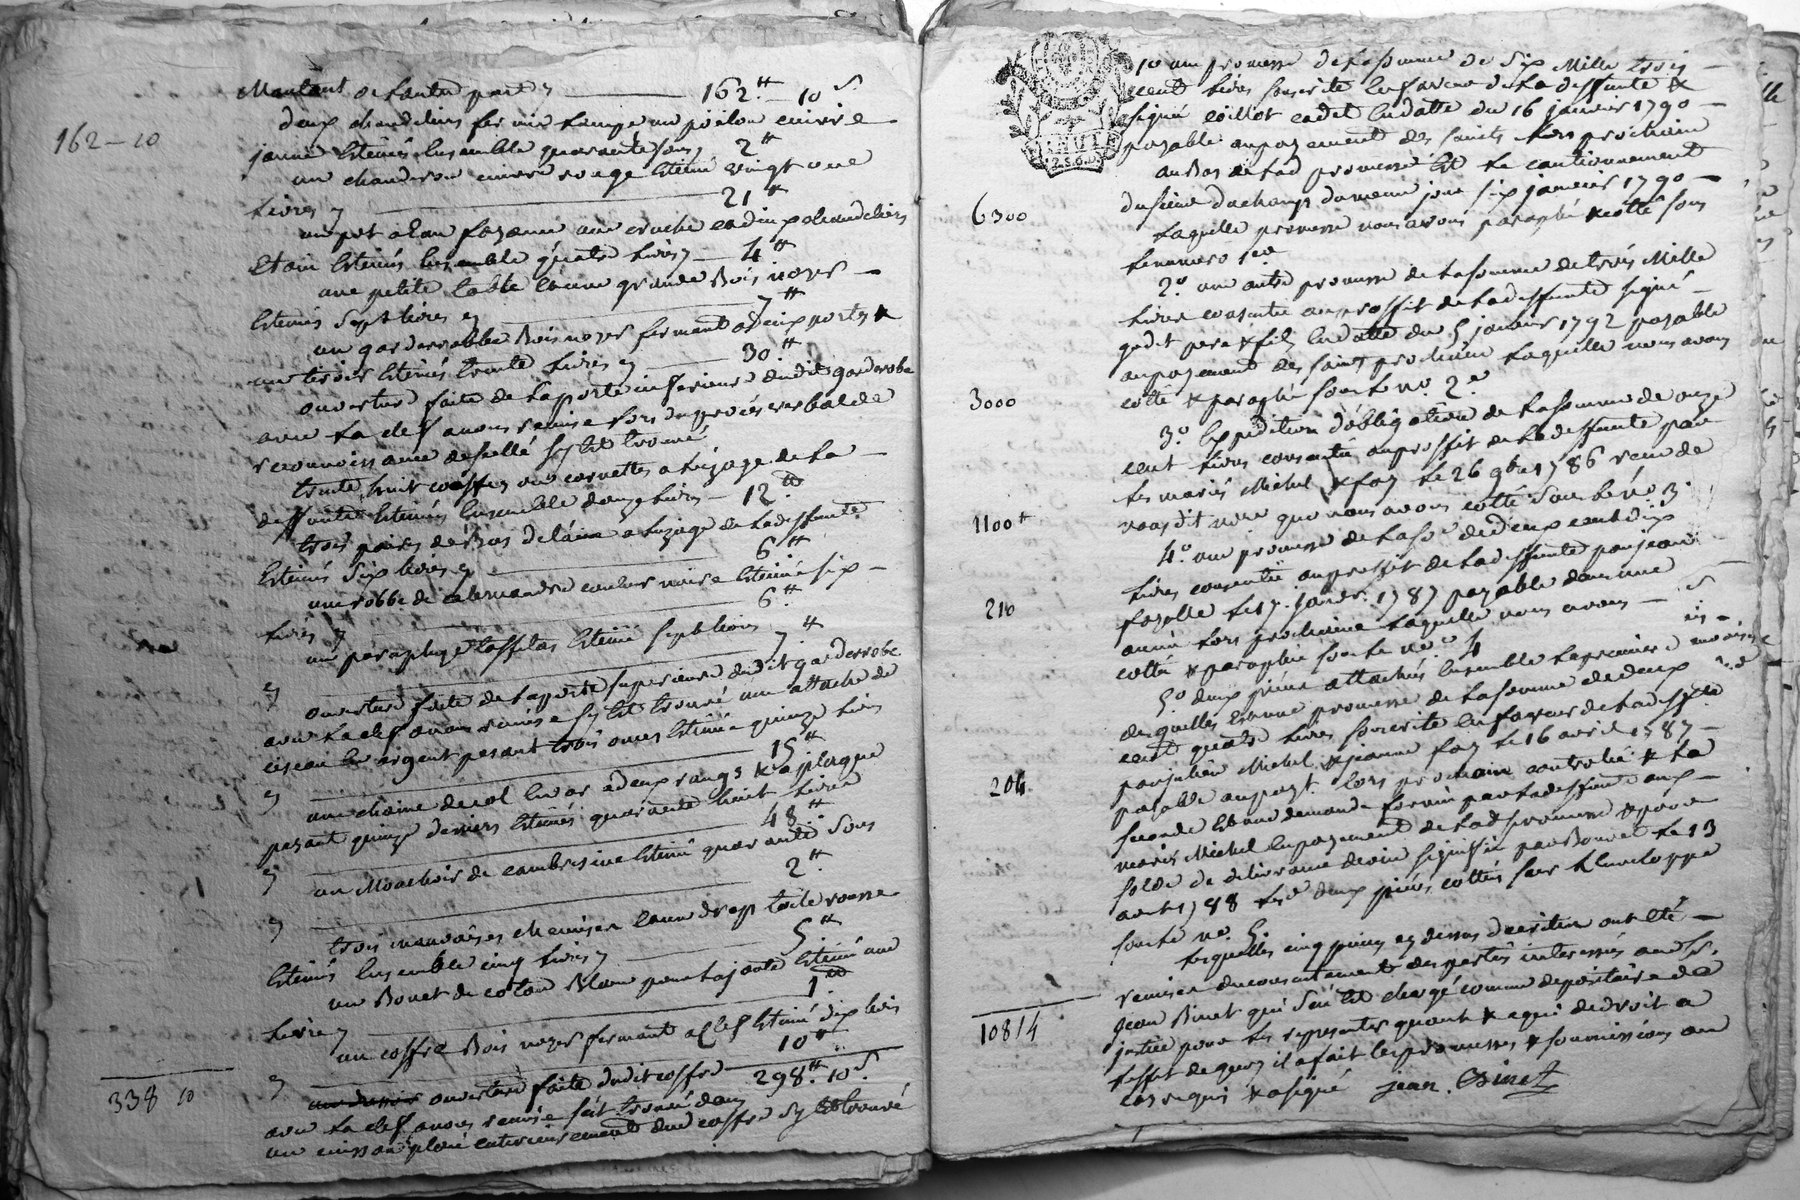 Montant de lautre part 162 ₶ 10 s
162 – 10
deux chandeliers fer une lampe un poëlon cuivre
jaune Estimés Ensemble quarante sous 2 ₶
un chanderon cuivre rouge Estimé vingt une
Livres 21 ₶
un pot a Eau fayance une cruche et deux chandeliers
Etain Estimés Ensemble quatre Livres 4 ₶
une petite table Et une grande Bois noyer
Estimés Sept livres 7 ₶
un garderrobbe Bois noyer fermant a deux portes &
un tiroir Estimés trente Livres 30 ₶
ouverture faite de la porte inferieure dudit garderobe
avec la clef a nous remise lors du procés verbal de
reconnoissance de scellé sy Est trouvé
trente huit coeffes ou cornettes a luzage de la
deffunte Estimés Ensemble douze Livres 12 ₶
trois paires de Bas de laine a luzage de la deffunte
Estimés Six livres 6 ₶
une robbe de calemandre couleur noire Estimée six
Livres 6 ₶
un parapluye taffetas Estimé sept livres
7 ₶
ouverture faite de la porte superieure dudit garderrobe
avec la clef a nous remise sy Est trouvé une attache de
ciseau en argent pesant trois onces Estimée quinze Livres
15 ₶
une chaine de col En or a deux rangs & a plaque
pezant quinze deniers Estimés quarante huit Livres
48 ₶
un Mouchoir de cambresine Estimé quarante Sous
2 ₶
trois mauvaises chemises Et un drap toile rousse
Estimés Ensemble cinq Livres 5 ₶
un Bonet de coton Blanc Estimé une
Livre 1 ₶
un coffre Bois noyer fermant a clef Estimé dix livres
10 ₶
298 ₶ 10 s
338 10
ouverture faite dudit coffre
avec la clef a nous remise sait trouvé dans
un dud coffre sy Est trouvé
1o une promesse de la somme de Six Mille trois
cent Livres souscrite En faveur de la deffunte &
signé coillot cadet En datte du 16 janvier 1790
payable au payement des saints Lors prochain
au Bas de lad promesse Est le cautionnement
du sieur duchamp du meme jour six janvier 1790
6300
Laquelle promesse nous avons paraphé & cotté sous
Le numero 1er
2o une autre promesse de la somme de trois Mille
Livres consentie au proffit de la deffunte signé
gedet pere & fils En datte du 5 janvier 1792 payable
au payement des saints prochain Laquelle nous avons
3000
cotté & paraphé sous le no 2e
3o Expedition d'obligation de la somme de onze
cent Livres consentie au proffit de la deffunte par
Les mariés Michel & fay le 26 9bre 1786 recue de
1100 ₶
nousdit noire que nous avons cotté sous le no 3
4o une promesse de la so de deux cent dix
Livres consentie au proffit de la deffunte par jean
fayolle le 17 janvr 1787 payable dans une
210
année Lors prochaine Laquelle nous avons
cotté & paraphé sous le no 4
5o deux pieces attachées Ensemble La premiere
desquelles Est une promesse de la somme de deux
cent quatre Livres souscrite En faveur de la deffte
par julien Michel & jeanne fay le 16 avril 1787
204
payable au payt Lors prochain controlée & La
seconde Est une demande formée par la deffunte aux
mariés Michel En payement de lad promesse & pour
solde de delivrance de vin signifié par Bouvet le 13
aout 1788 Lesd deux pieces cottées sur L'Enveloppe
sous le no 5
Lesquelles cinq pieces cy dessus décrittes ont Eté
remises du consentement des parties interessées aud Sr
Jean Binet qui s'en Est chargé comme depositaire de
10814
justice pour Les representer quant & a qui de droit a
L'effet de quoy il a fait les promesses & soumissions au
cas requis & a signé jean Binet